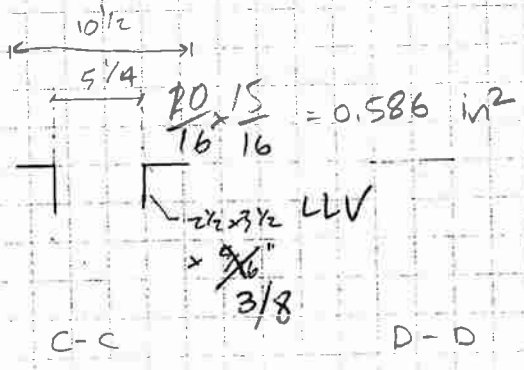 10 1/2
5 1/4
10/16 × 15/16 = 0.586 in²
2½ x 3½ LLV
× 5/16"
3/8
C-C
D-D